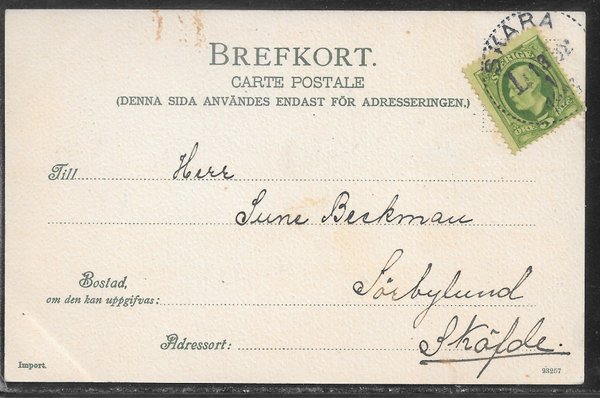 BREFKORT.
CARTE POSTALE
(DENNA SIDA ANVÄNDES ENDAST FÖR ADRESSERINGEN.)
SKARA
SVERIGE
5 ÖRE
Till Herr
Sune Beckman
Bostad, Sörbylund
om den kan uppgifvas:
Adressort: Sköfde.
Import. 93257